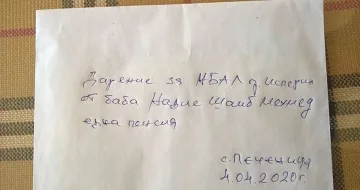 Дарение за МБАЛ д Исперих
от баба Надие Шаиб Мехмед
една пенсия
с. Печеница
4.04.2020г.